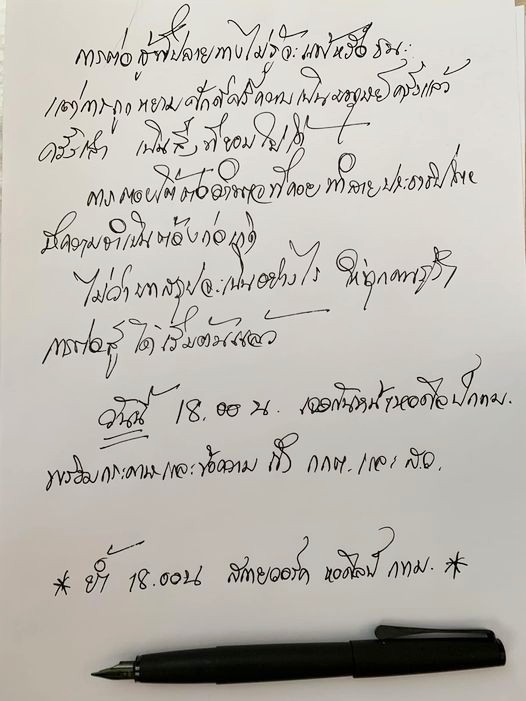 การต่อสู้ที่ปลายทางไม่รู้จะแพ้หรือชนะ
แต่การถูกหยามศักดิ์ศรีความเป็นมนุษย์ครั้งแล้ว
ครั้งเล่า เป็นสิ่งที่ยอมไม่ได้
การตอบโต้ต่ออำนาจที่คอยทำลายประชาธิปไตย
มีความจำเป็นต้องก่อเกิด
ไม่ว่าบทสรุปจะเป็นอย่างไร ให้ทุกคนรู้ว่า
การต่อสู้ได้เริ่มต้นแล้ว
วันนี้ 18.00 น. เจอกันหน้าหอศิลป์กทม.
พร้อมกระดาษและข้อความ ถึง กกต. และ ส.ว.
* ย้ำ 18.00น สกายวอร์ค หอศิลป์ กทม. *